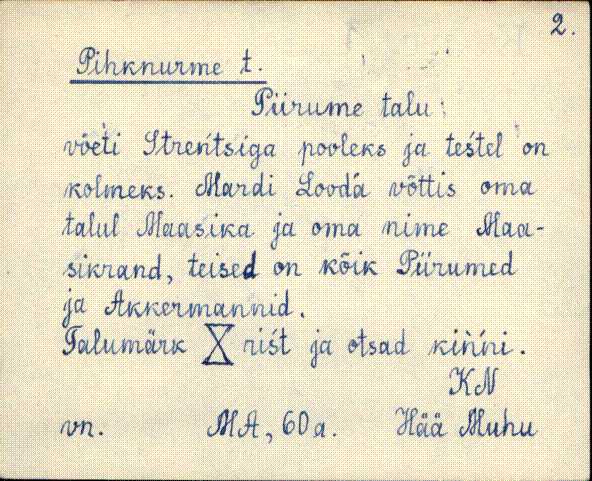 2.
Pihknurme t.
Piirume talu
võeti Strentsiga pooleks ja testel on
kolmeks. Mardi Looda võttis oma
talul Maasika ja oma nime Maa-
sikrand, teised on kõik Piirumed
ja Akkermannid.
Talumärk rist ja otsad kińńi.
KN
vn. MA, 60 a. Hää Muhu